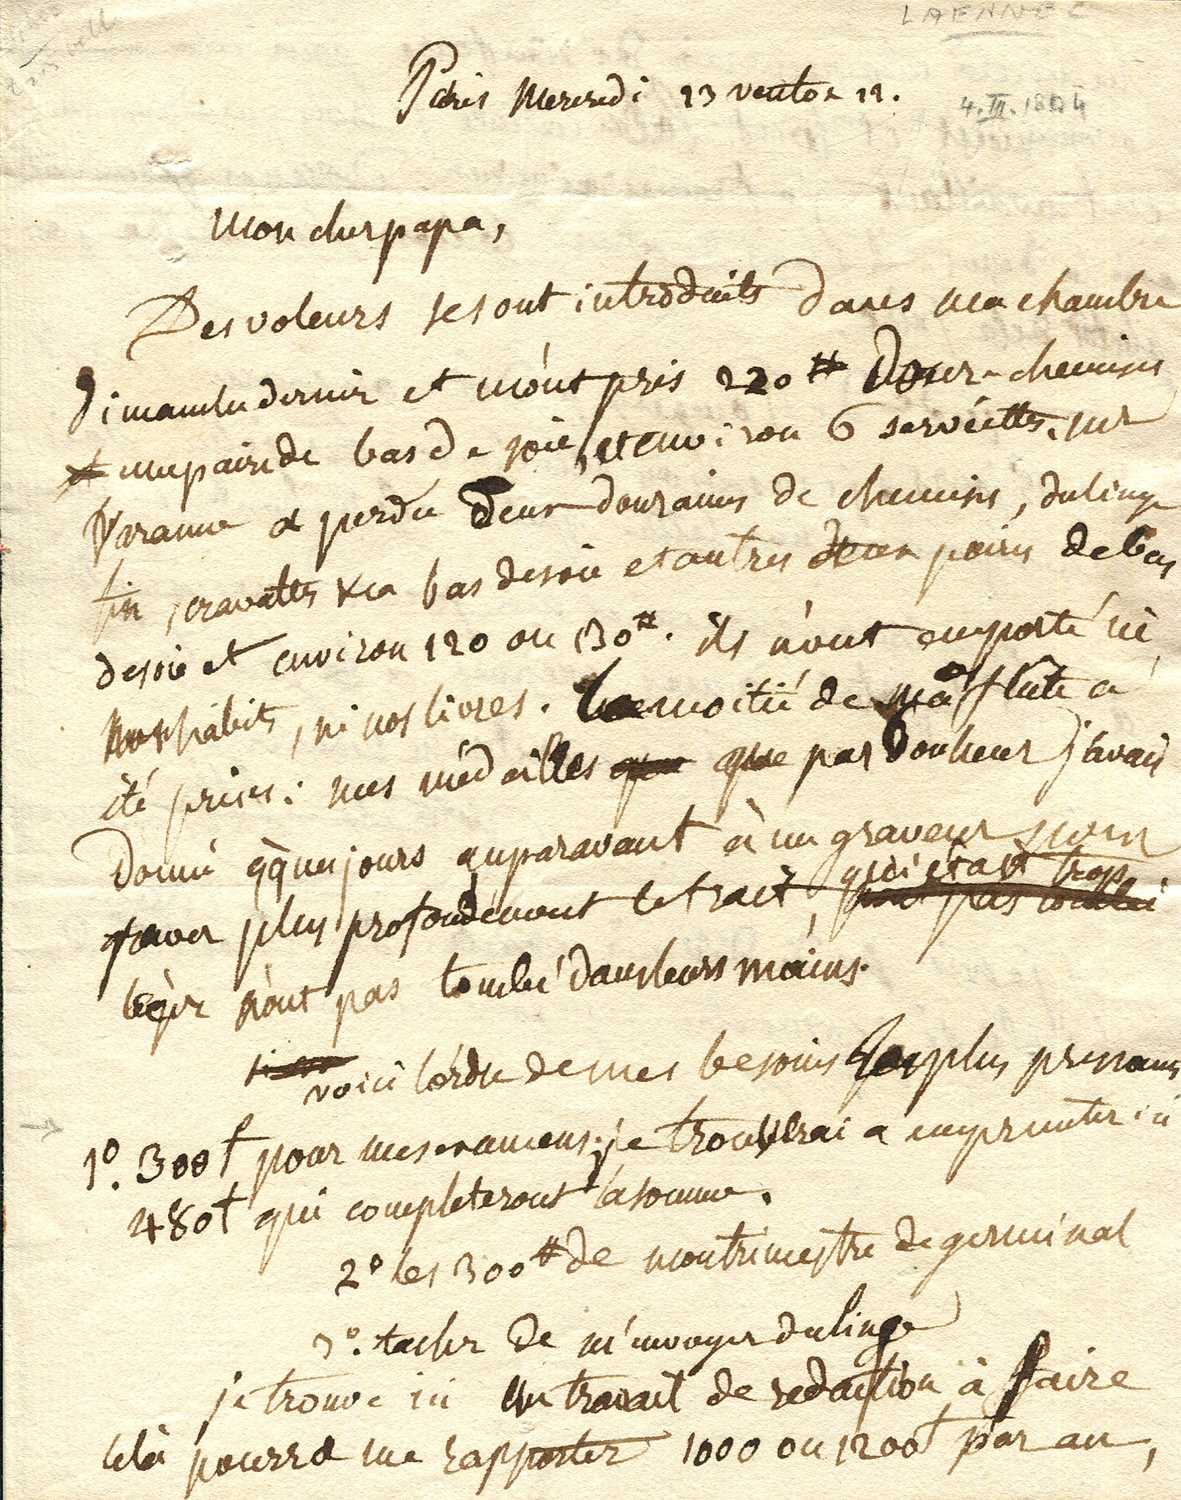 LAENNEC
Paris Mercredi 13 ventose 12.
4.III.1804
Mon cher papa,
Des voleurs se sont introduits dans ma chambre
dimanche dernier et m'ont pris 220# douze chemises
une paire de bas de soie, et environ 6 serviettes. mr
Varanne a perdu deux douzaines de chemises, du linge
fin, cravattes &ca bas de soie et autres deux paires de bas
de soie et environ 120 ou 130#. ils n'ont emporté ni
nos habits, ni nos livres. la moitié de ma flûte a
été prise: mes médailles que par bonheur j'avais
donné qques jours auparavant à un graveur pour
graver plus profondément le trait, qui était trop
léger n'ont pas tombé dans leurs mains.
voici l'ordre de mes besoins les plus pressans
1º. 300t pour mes examens; je trouverai a emprunter ici
480t qui completeront la somme.
2º les 300# de mon trimestre de germinal
3º. tacher de m'envoyer du linge
je trouve ici un travail de rédaction à faire
cela pourra me rapporter 1000 ou 1200t par an,